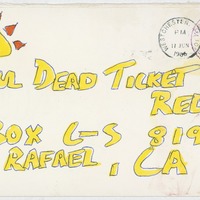 WESTCHESTER
PM
11 JUN
UL DEAD TICKET
REL
BOX C-S 819
RAFAEL, CA